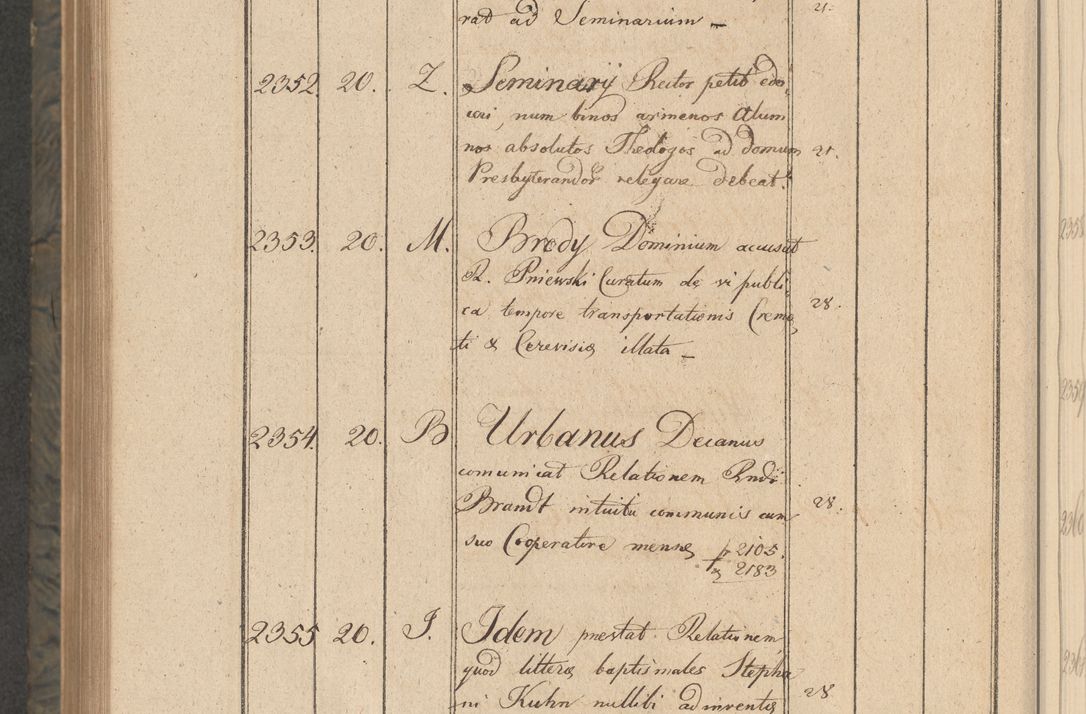 rat ad Seminarium – 21.
2352. 20. Z. Seminarij Rector petit edo,
ceri, num binos armenos Alum
nos absolutos Theologos ad domum 21.
Presbyterandor relegare debeat?
2353. 20. M. Brody Dominium accusat
R. Pniewski Curatum de vi publi,
ca tempore transportationis Crema, 28.
ti & Cerevisiæ illata –
2354. 20. B Urbanus Decanus
comunicat Relationem Rndi
Brandt intuitu communis cum 28.
suo Cooperatore mensæ p 2105.
& 2183
2355 20. I. Idem præstat Relationem,
quod litteræ baptismales Stepha
ni Kuhn nullibi adinventæ 28